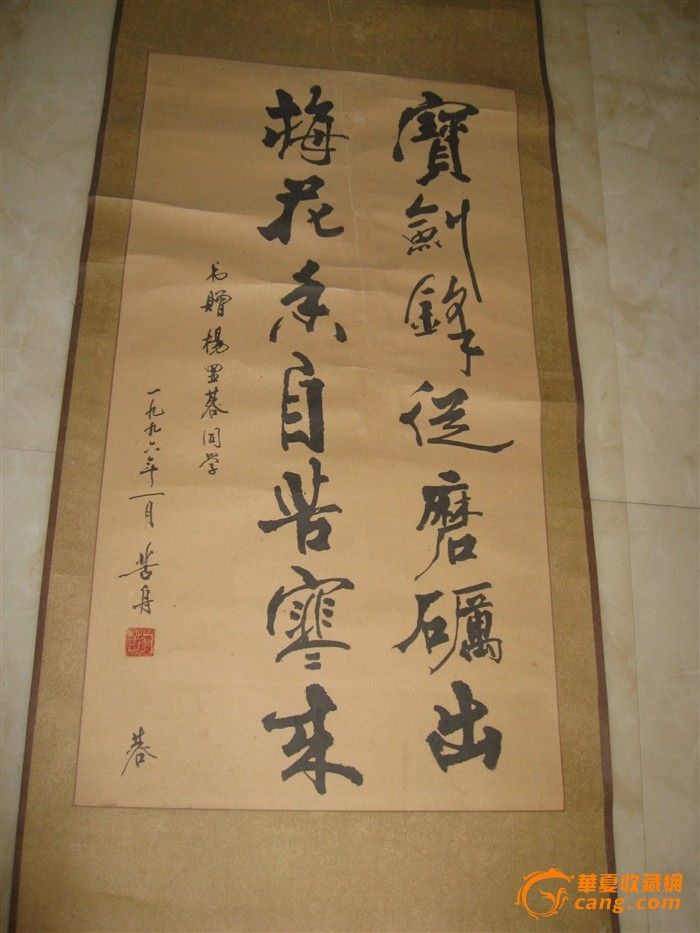 寶劍鋒從磨礪出
梅花香自苦寒來
书赠楊蓉同学
一九九六年一月 苦舟
華夏收藏網
cang.com